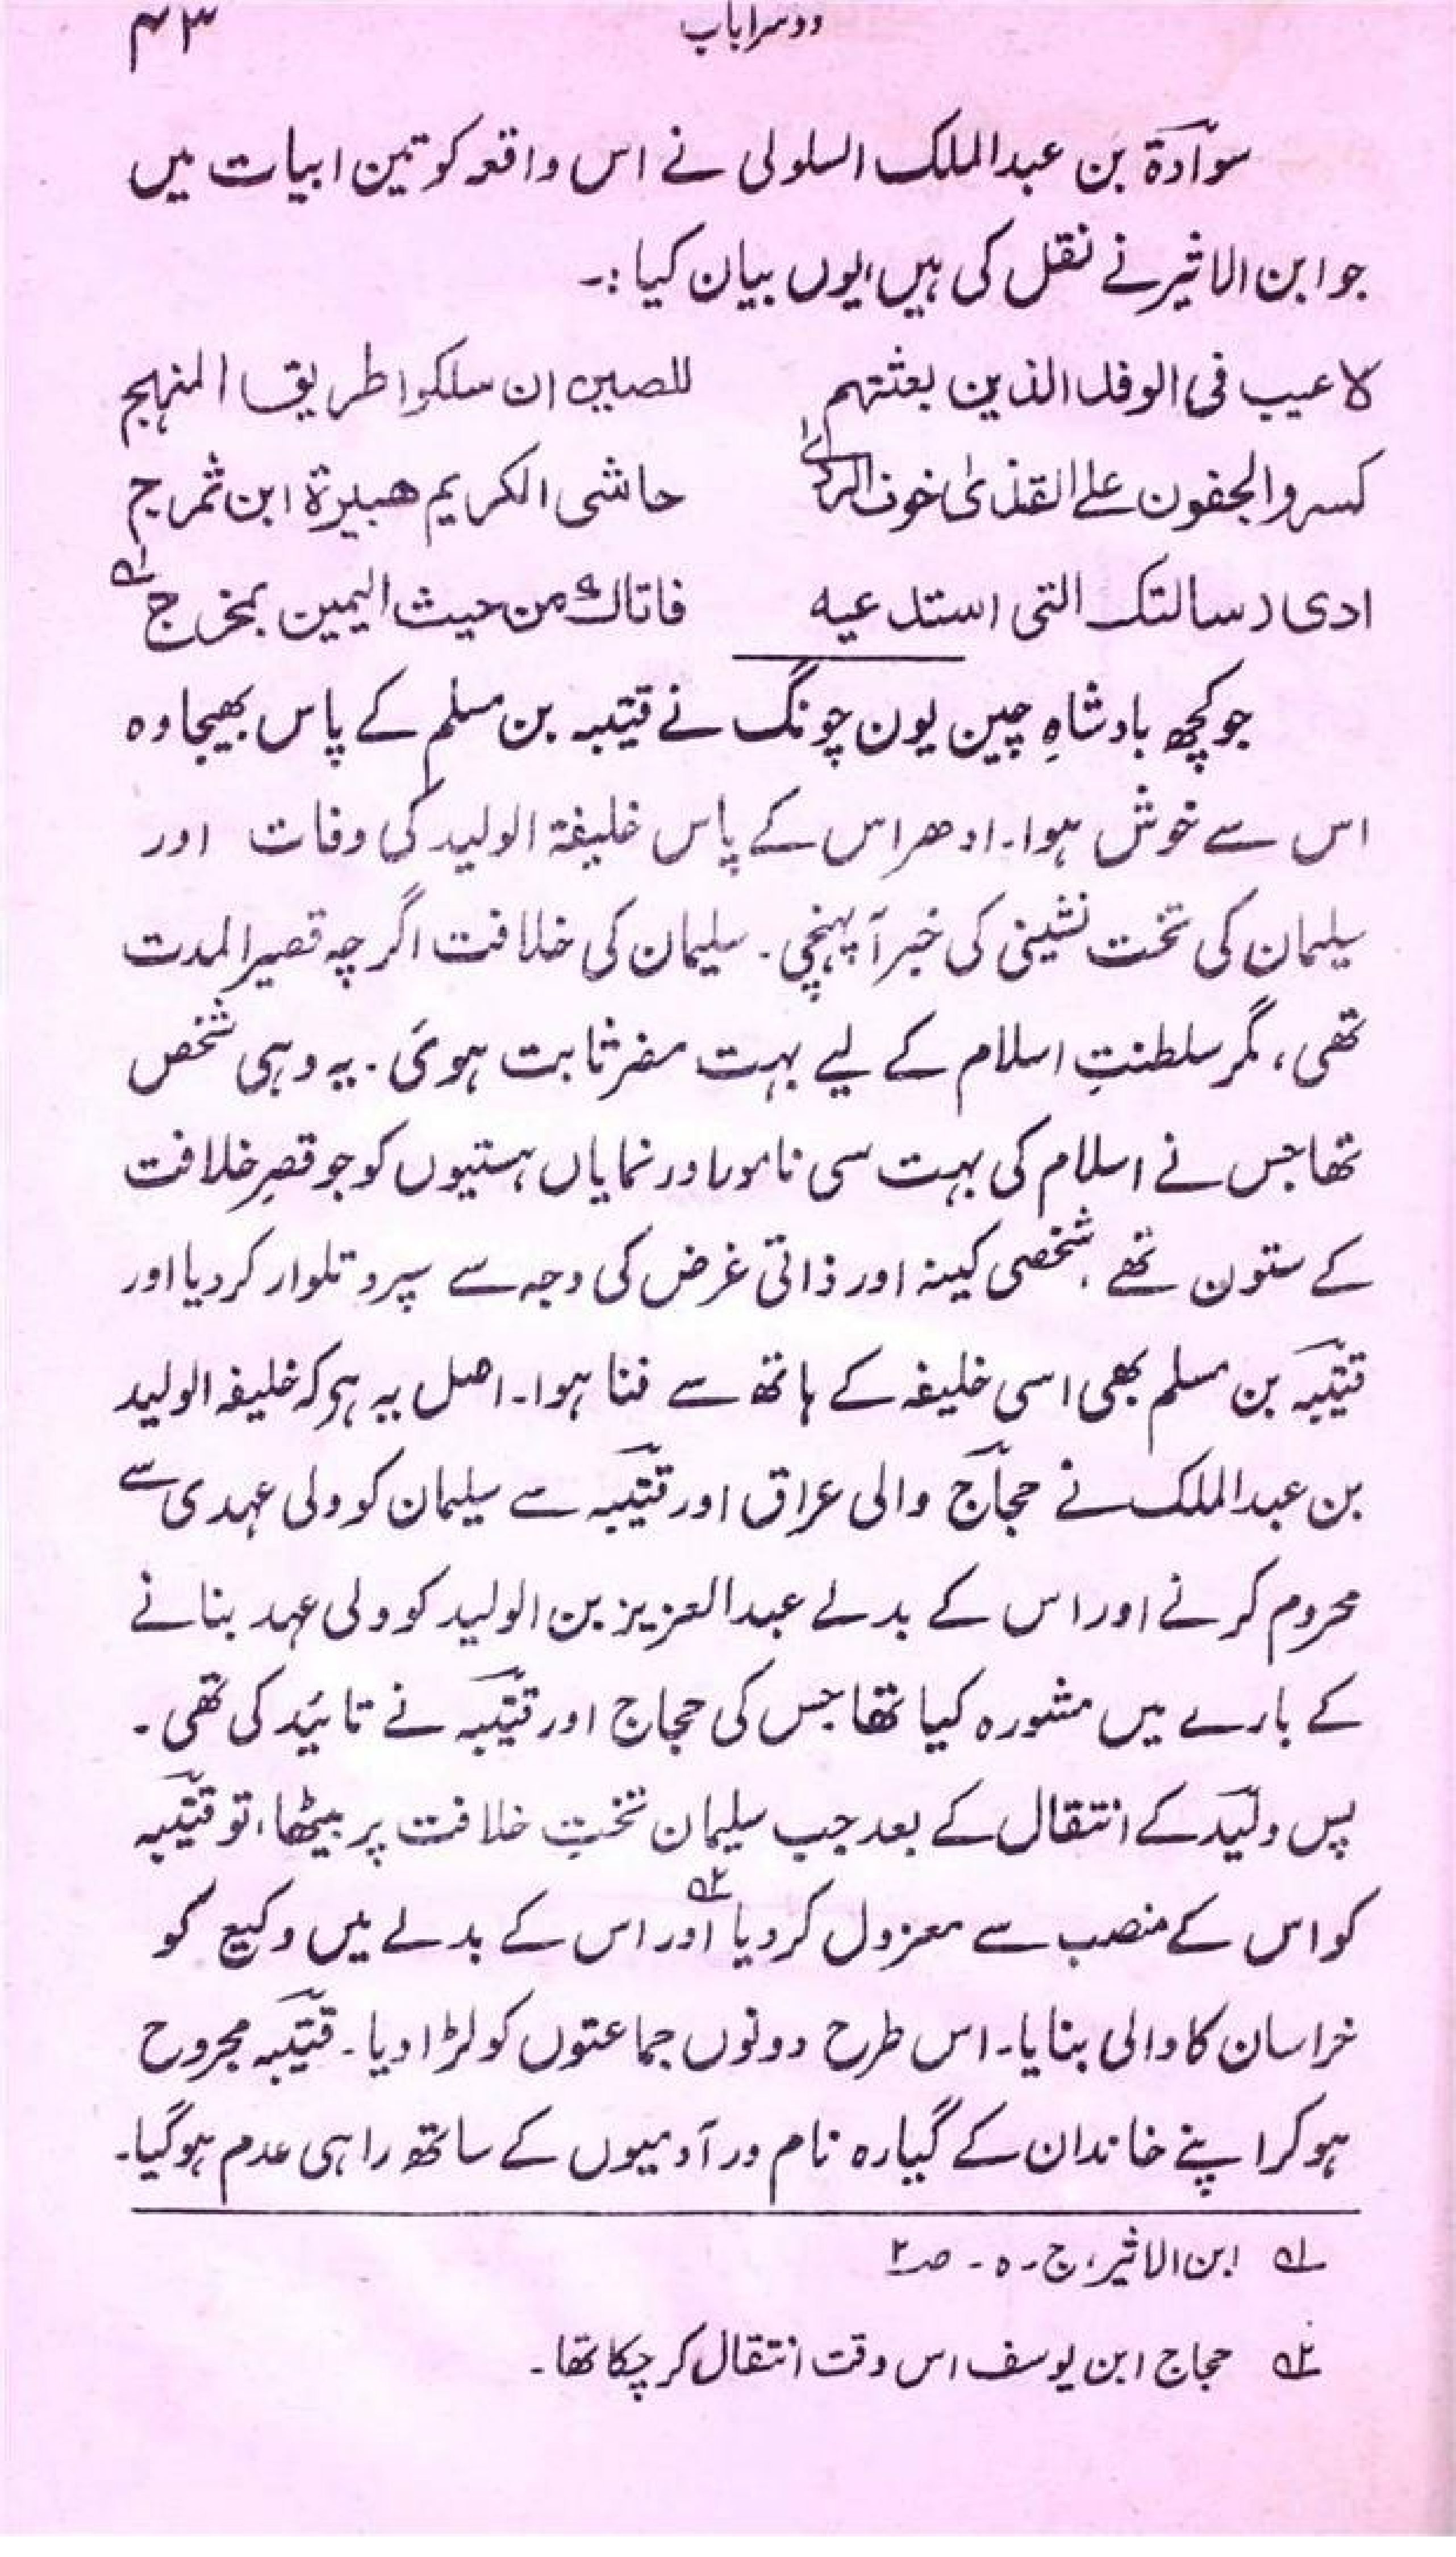 دوسرا باب ۴۳
سوادۃ بن عبدالملک السلولی نے اس واقعہ کو تین ابیات میں
جو ابن الاثیر نے نقل کی ہیں، یوں بیان کیا:۔
لاعیب فی الوفد الذین بعثتہم للصین ان سلکوا طریق المنہج
کسروا الجفون علے القذیٰ خوف الردیٰ حاشی الکریم ھبیرۃ ابن ثمرج
ادی رسالتک التی استدعیہ فاتاک من حیث الیمین بمخرج ۱؎
جو کچھ بادشاہِ چین یون چونگ نے قیتبہ بن مسلم کے پاس بھیجا وہ
اس سے خوش ہوا۔ ادھر اس کے پاس خلیفۃ الولید کی وفات اور
سلیمان کی تخت نشینی کی خبر آ پہنچی۔ سلیمان کی خلافت اگرچہ قصیر المدت
تھی، مگر سلطنتِ اسلام کے لیے بہت مضر ثابت ہوئی۔ یہ وہی شخص
تھا جس نے اسلام کی بہت سی نامور اور نمایاں ہستیوں کو جو قصرِ خلافت
کے ستون تھے، شخصی کینہ اور ذاتی غرض کی وجہ سے سپرد تلوار کر دیا اور
قیتبہ بن مسلم بھی اسی خلیفہ کے ہاتھ سے فنا ہوا۔ اصل یہ ہو کہ خلیفہ الولید
بن عبدالملک نے حجاج والی عراق اور قیتبہ سے سلیمان کو ولی عہدی سے
محروم کرنے اور اس کے بدلے عبدالعزیز بن الولید کو ولی عہد بنانے
کے بارے میں مشورہ کیا تھا جس کی حجاج اور قیتبہ نے تائید کی تھی۔
پس ولید کے انتقال کے بعد جب سلیمان تختِ خلافت پر بیٹھا، تو قیتبہ
کو اس کے منصب سے معزول کر دیا ۲؎ اور اس کے بدلے میں وکیع کو
خراسان کا والی بنایا۔ اس طرح دونوں جماعتوں کو لڑا دیا۔ قیتبہ مجروح
ہو کر اپنے خاندان کے گیارہ نام ور آدمیوں کے ساتھ راہی عدم ہو گیا۔
۱؎ ابن الاثیر، ج۔ ۵۔ صـ۲
۲؎ حجاج ابن یوسف اس وقت انتقال کر چکا تھا۔